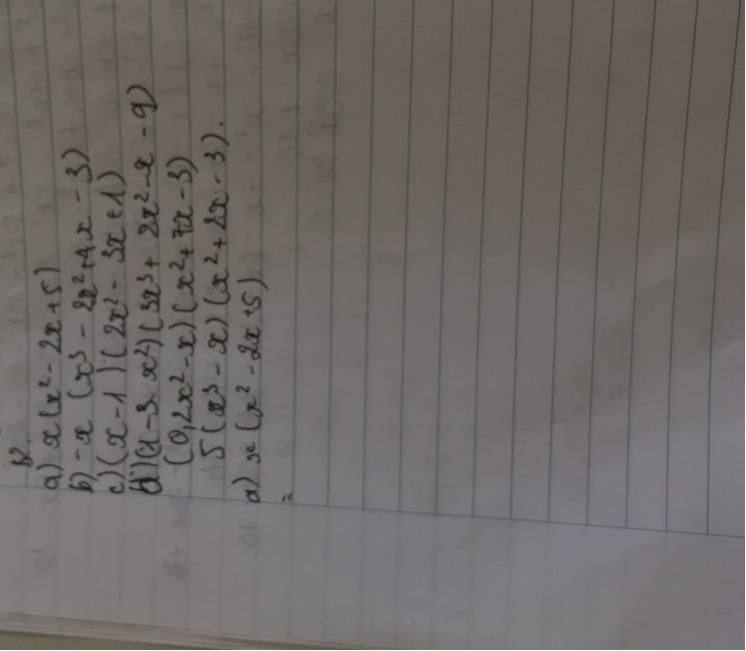 a) x(x² - 2x + 5)
b) -x (x³ - 2x² + 4x - 3)
c) (x - 1) (2x² - 3x + 1)
d) (1 - 3x²) (3x³ + 2x² - x - 9)
(0,2x² - x) (x² + 7x - 3)
5 (x³ - x) (x² + 2x - 3).
a) x (x² - 2x + 5)
=